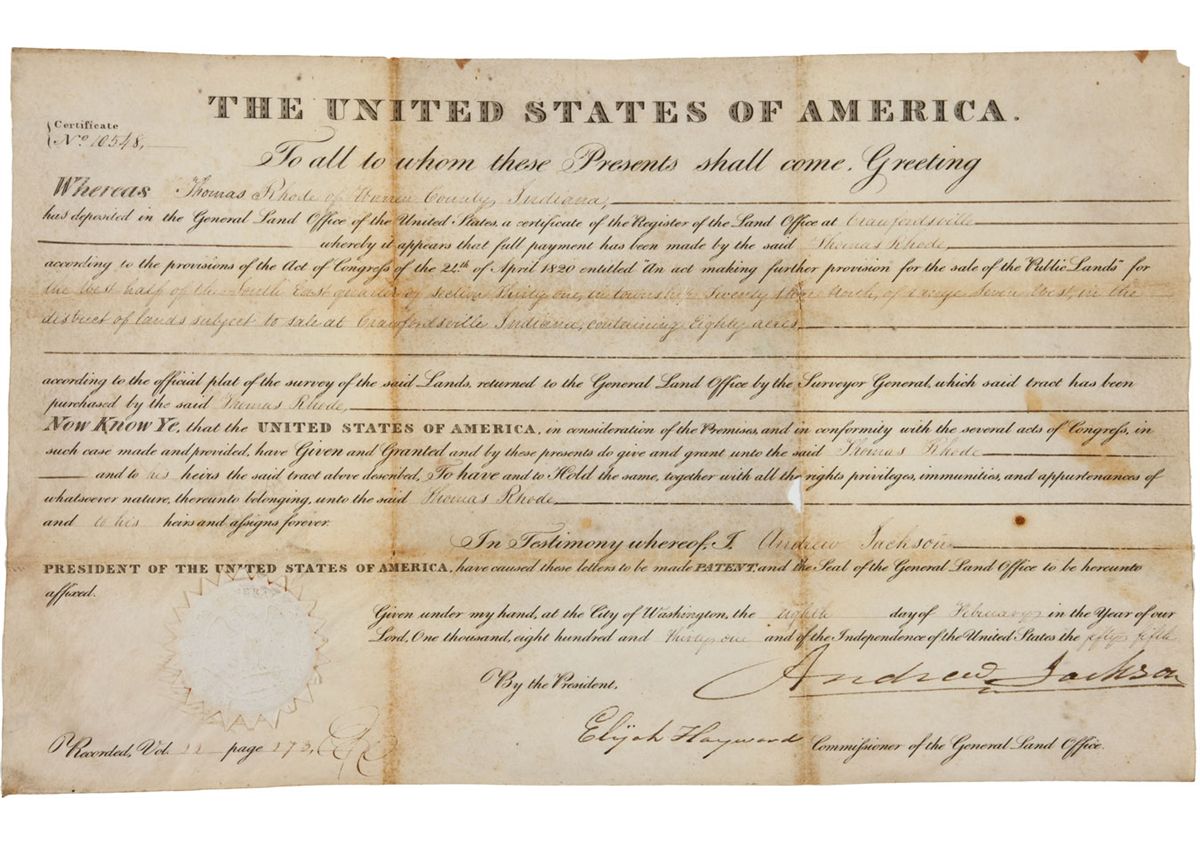 THE UNITED STATES OF AMERICA.
Certificate
No. 10548,
To all to whom these Presents shall come, Greeting
Whereas Thomas Rhode of Warren County, Indiana,
has deposited in the General Land Office of the United States, a certificate of the Register of the Land Office at Crawfordsville
whereby it appears that full payment has been made by the said Thomas Rhode,
according to the provisions of the Act of Congress of the 24th of April 1820 entitled "An act making further provision for the sale of the Public Lands" for
the West half of the South East quarter of section Thirty one, in township Twenty North, of range Seven West, in the
district of lands subject to sale at Crawfordsville Indiana, containing Eighty acres
according to the official plat of the survey of the said Lands, returned to the General Land Office by the Surveyor General, which said tract has been
purchased by the said Thomas Rhode,
Now Know Ye, that the UNITED STATES OF AMERICA, in consideration of the Premises, and in conformity with the several acts of Congress, in
such case made and provided, have Given and Granted and by these presents do give and grant unto the said Thomas Rhode
and to his heirs the said tract above described, To have and to Hold the same, together with all the rights privileges, immunities, and appurtenances of
whatsoever nature, thereunto belonging, unto the said Thomas Rhode
and to his heirs and assigns forever.
In Testimony whereof, I, Andrew Jackson
PRESIDENT OF THE UNITED STATES OF AMERICA, have caused these letters to be made PATENT, and the Seal of the General Land Office to be hereunto
affixed.
Given under my hand, at the City of Washington, the eighth day of February in the Year of our
Lord, One thousand, eight hundred and thirty one and of the Independence of the United States the fifty fifth
By the President, Andrew Jackson
Elijah Hayward Commissioner of the General Land Office.
Recorded, Vol. page 273,